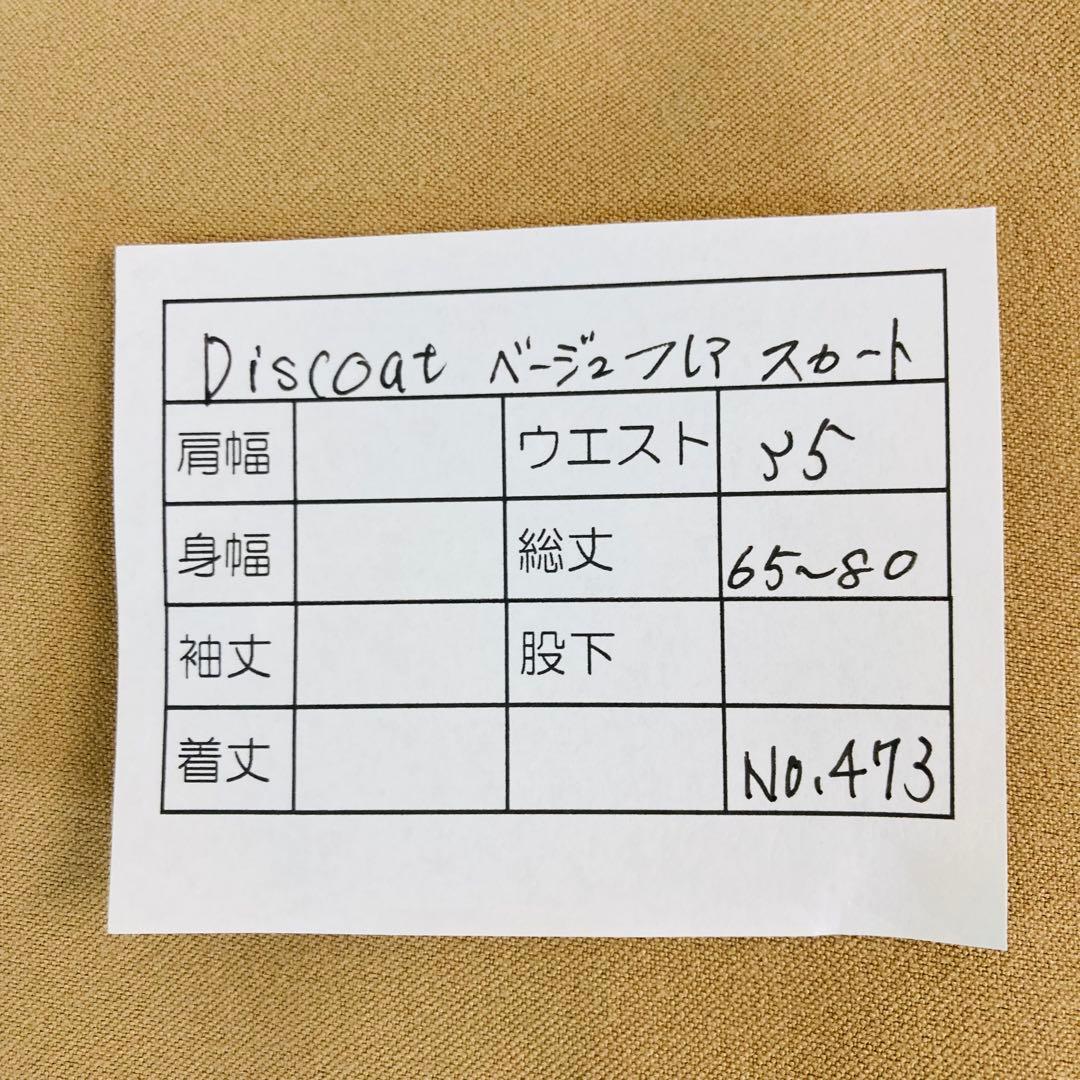 Discoat ベージュ フレア スカート
肩幅 ウエスト
身幅 総丈 65~80
袖丈 股下
着丈 No.473